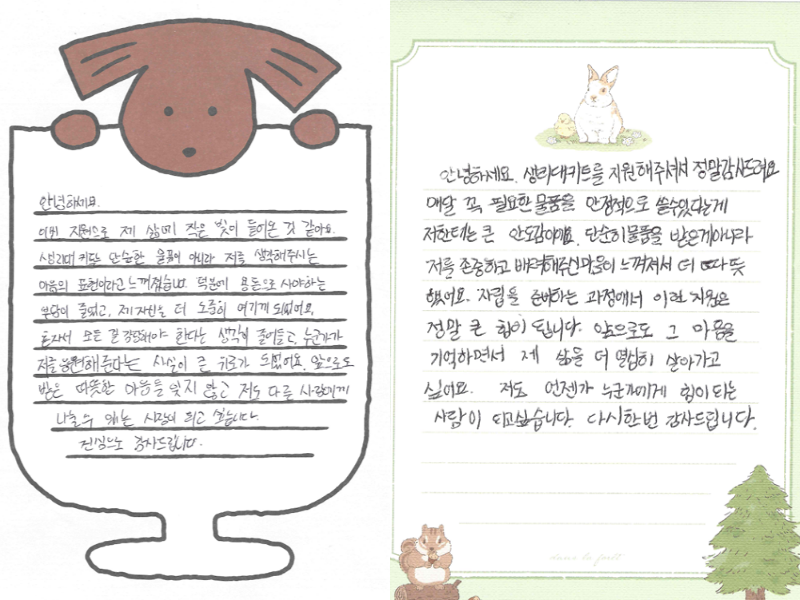 안녕하세요.
이번 지원으로 제 삶에 작은 빛이 들어온 것 같아요.
생리대 키트는 단순한 물품이 아니라 저를 생각해주시는
마음의 표현이라고 느껴졌습니다. 덕분에 용돈으로 사야하는
부담이 줄었고, 제 자신을 더 소중히 여기게 되었어요.
혼자서 모든 걸 감당해야 한다는 생각이 줄어들고, 누군가가
저를 응원해 준다는 사실이 큰 위로가 되었어요. 앞으로도
받은 따뜻한 마음을 잊지 않고 저도 다른 사람에게
나눌 수 있는 사람이 되고 싶습니다.
진심으로 감사드립니다.
안녕하세요. 생리대키트를 지원해주셔서 정말감사드려요
매달 꼭 필요한 물품을 안정적으로 쓸수있다는게
저한테는 큰 안도감이에요. 단순히물품을 받은게아니라
저를 존중하고 배려해주신마음이 느껴져서 더 따뜻
했어요. 자립을 준비하는 과정에서 이런 지원은
정말 큰 힘이 됩니다. 앞으로도 그 마음을
기억하면서 제 삶을 더 열심히 살아가고
싶어요. 저도 언젠가 누군가에게 힘이 되는
사람이 되고싶습니다. 다시한번 감사드립니다.